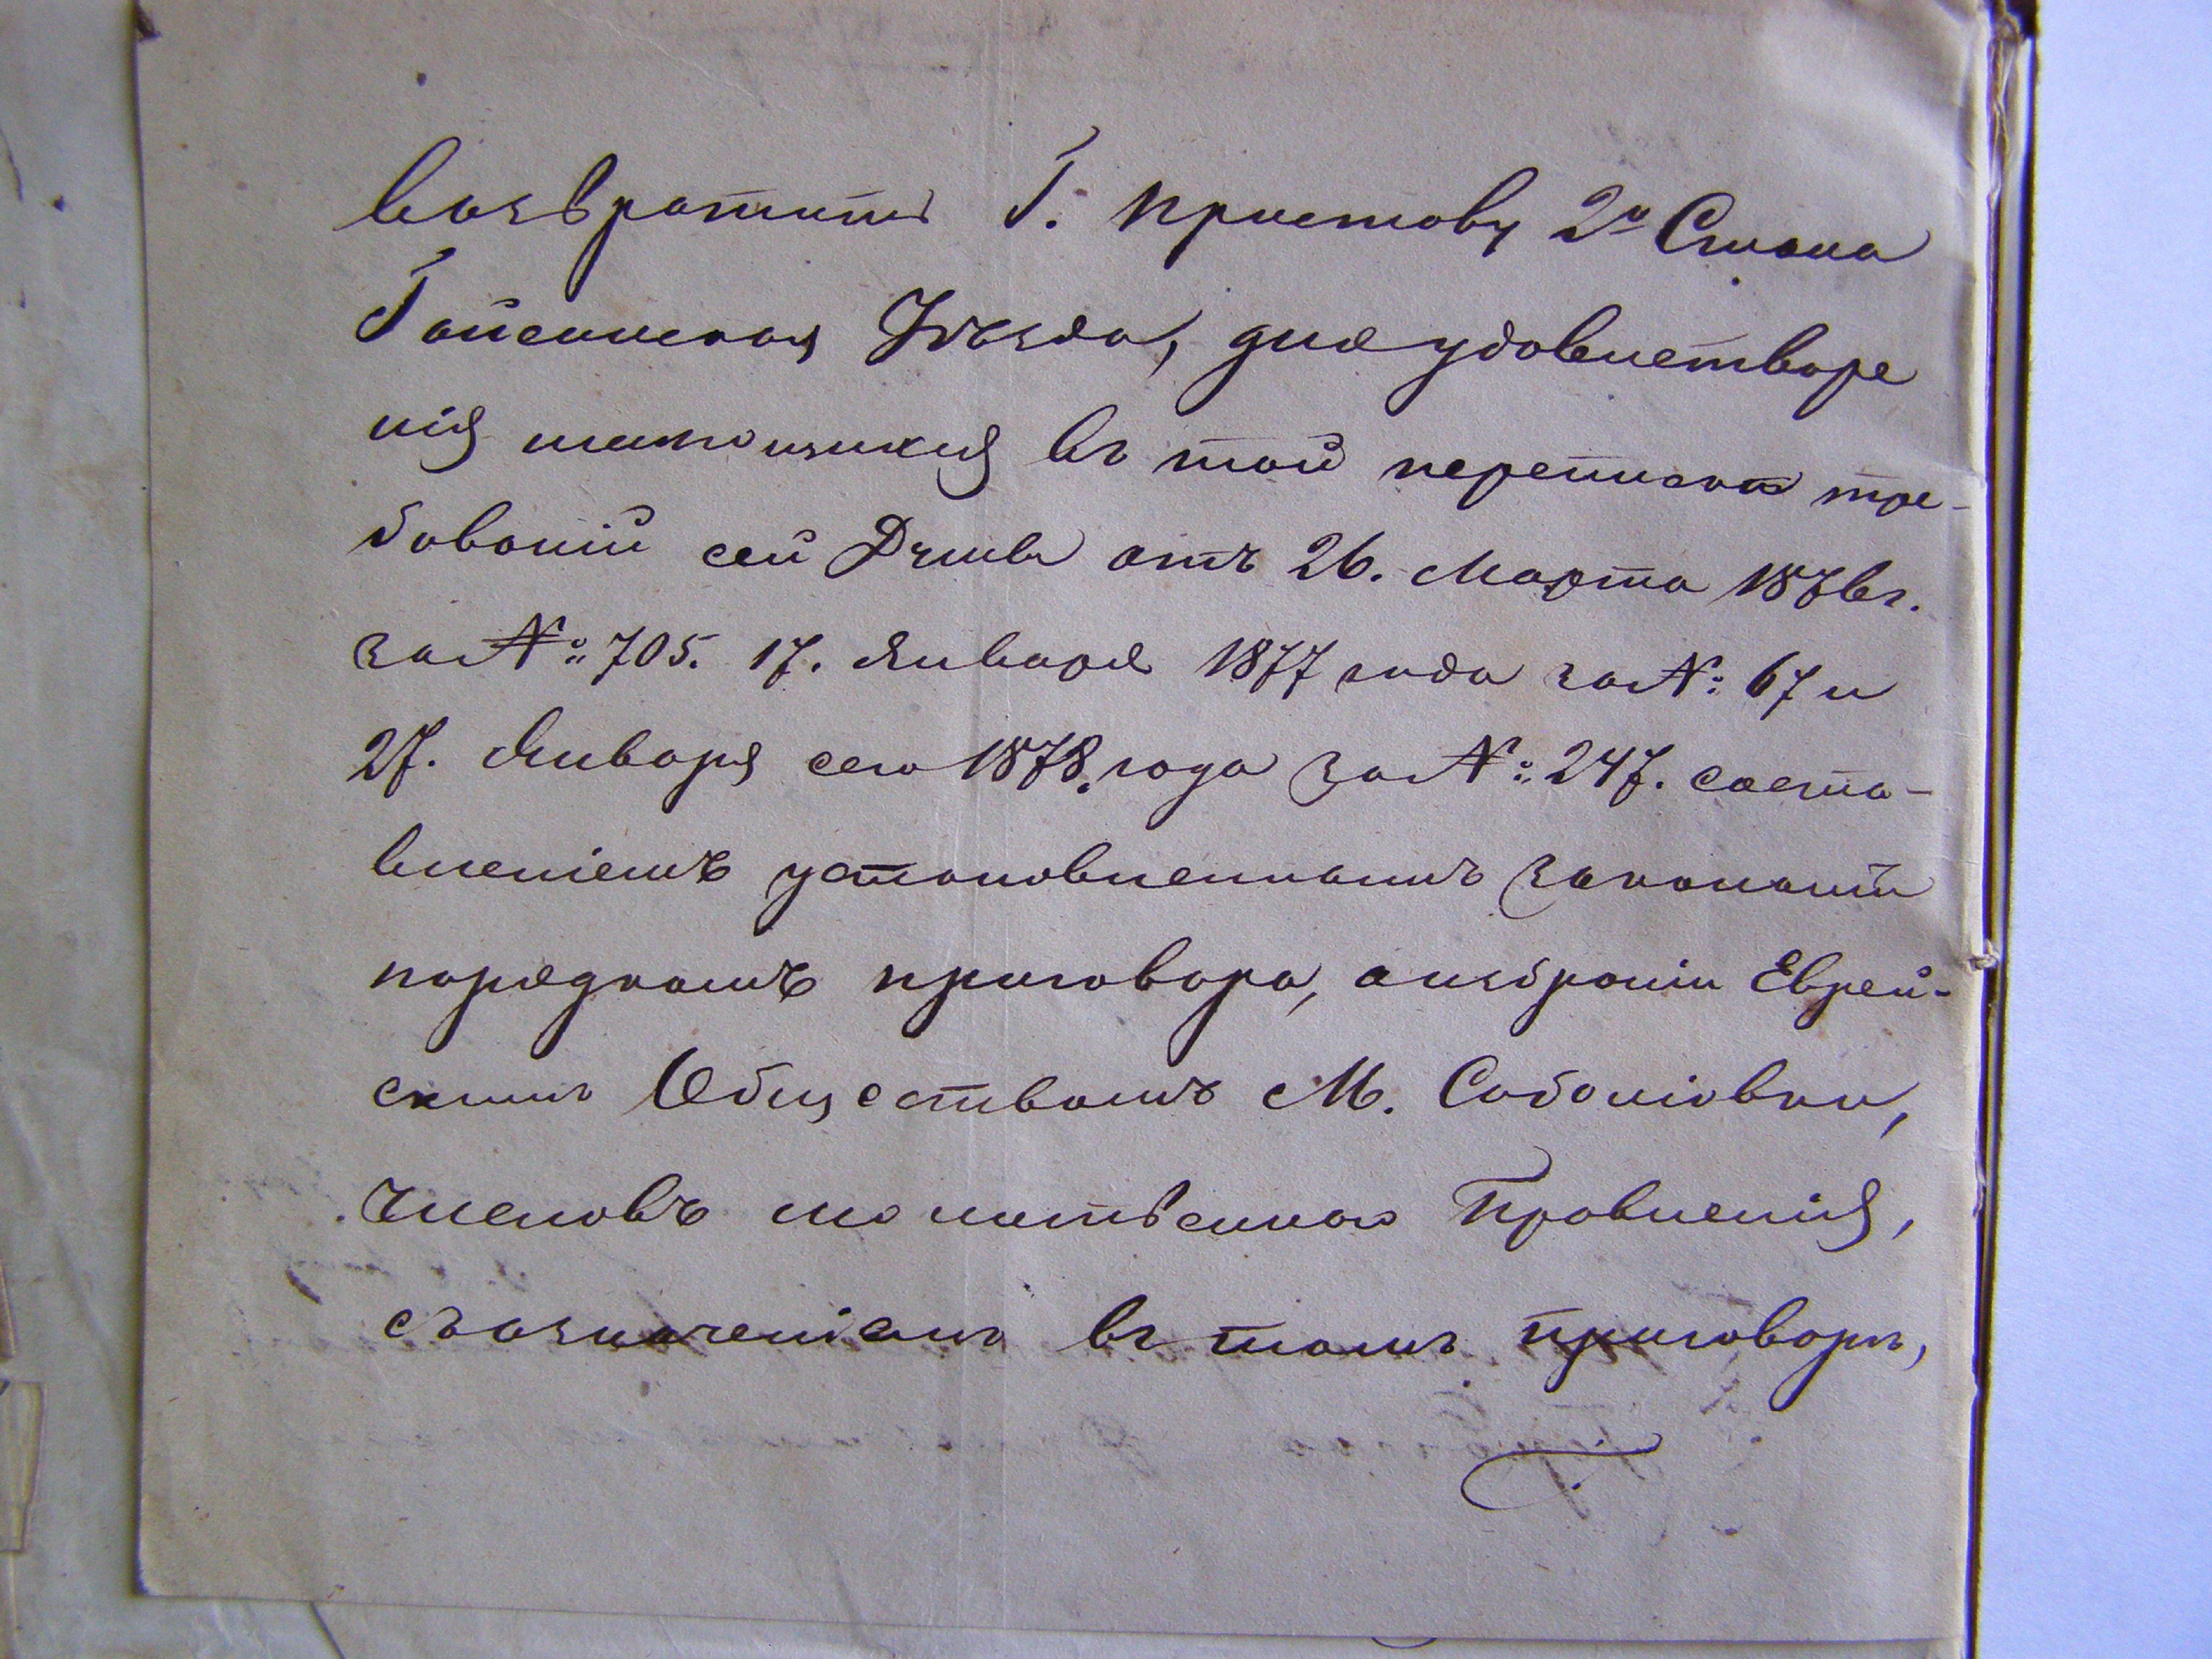 Возвратить Г. приставу 2о Стана
Гайсинскаго Уѣзда, для удовлетворе
нія изложенныхъ въ той перепискѣ тре-
бованій сей Думы отъ 26. Марта 1876 г.
за №: 705. 17. Января 1877 года за №: 67 и
27. Января сего 1878. года за №: 247. соста-
вленіемъ установленнымъ закономъ
порядкомъ приговора, о избраніи Еврей-
скимъ Обществомъ М. Соболіовки,
Членовъ молитвеннаго Правленія,
съ означеніемъ въ томъ приговорѣ,